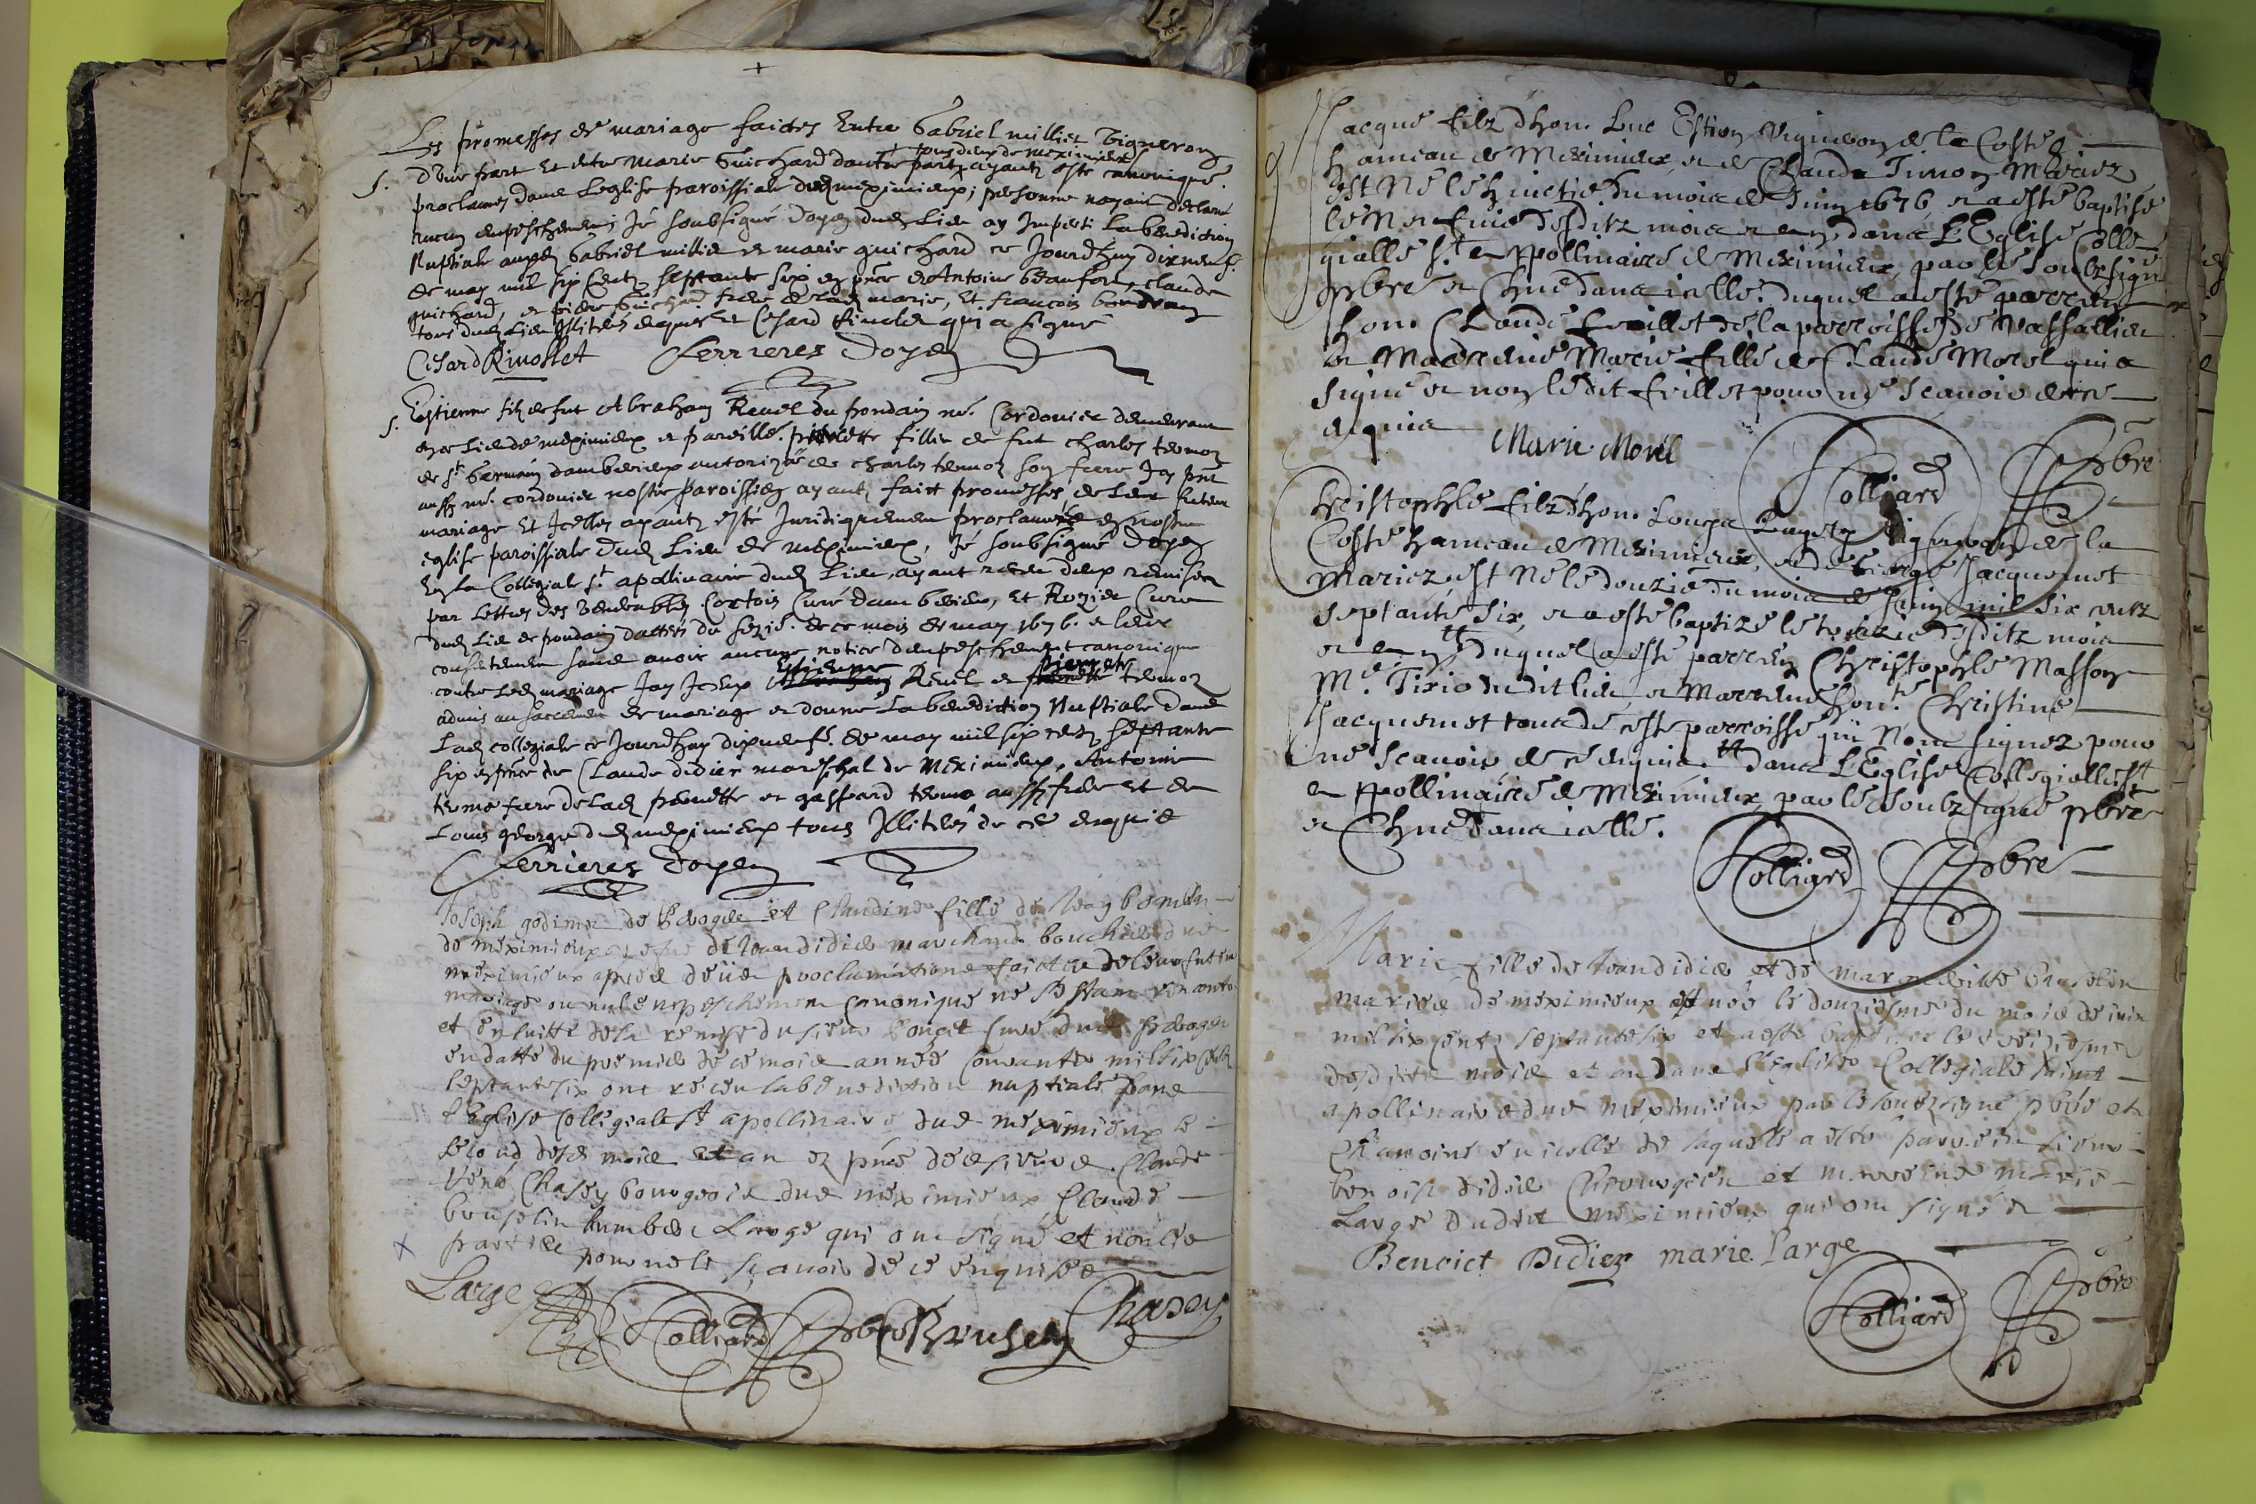 Les promesses de mariage faictes Entre Gabriel millier Vigneron
d'Une part Et entre Marie Guichard dautre part ayantz esté canonique.
tous deux de meximieux
proclamez dans Leglise paroissiale dud meximieux, personne nayant declaré
aucun empeschement, Jé soubsigné Doyen dud Lieu ay Imparti La benediction
Nuptiale ausd Gabriel millier et marie guichard ce Jourdhuy dixneuf.
de may mil six Centz septante six en pnce de Antoine beaufort, claude
guichard, et Guichard frere de lad marie, Et francois
tous dud Lieu Illiteres enquis Et Cesard qui a signé
Cesard Rivollet Ferrieres Doyen
S. Estienne filz de fut Abraham Revel du pondain me. Cordonier demeurant
en ce Lieu de meximieux et pareille. pierrette fillie de fut charles termoz
de st. Germain dambérieux autorizée de charles termoz son frere Icy pnt
aussy me. cordonier nostre paroissien ayantz faict promesses de Leur futeur
mariage Et Icelles ayantz esté Juridiquement proclamées en nostre
eglise paroissiale dud Lieu de meximieux, Jé soubsigné Doyen
En La Collegiale st. apollinaire dud Lieu, ayant receu deux remises
par Lettres des Venerables Cortois Curé damberieu, Et Rozier Curé
dud Lieu de pondain dattées du sezie. de ce mois de may 1676. et Leur
consentement sans avoir aucune notice dempeschement canonique
contre Led mariage Jay Iceux Estienne Revel et pierrette termoz
admis au sacrement de mariage et donné La benediction Nuptiale dans
Lad collegiale ce Jourdhuy dixneuf. de may mil six centz septante
six en pnce de Claude didier mareschal de Meximieux, Antoine
termo frere de Lad pernette et gaspard termo aussy frere Et de
Louis george dud meximieux tous Illiterés de ce enquis
Ferrieres Doyen
Joseph godimer de Et Claudine fille de Jean
de meximieux et de Jean didier marchand boucher dud
meximieux apres deue proclamations faictes de leur futur
mariage ou nul empeschement Canonique ne
et en suitte de la remise du sieur curé dud
en datte du premier de ce mois année Courante mil six centz
septante six ont receu la benediction nuptiale dans
l'Eglise Collegiale st apollinaire dud meximieux le
second desd mois et an en pnce de sieurs Claude
René Chasey bourgeois dud meximieux Claude
brusselin humber Large qui ont signé et non les
parties pour ne le sçavoir de ce enquises
Large Colliard Pbre Chasey
Jacque filz d'hon. Luc Estion Vigneron de la Coste
hameau de Meximieux et de Claude Timon Mariez
est né le huictie. du moix de Juin 1676 et a esté baptisé
le Neufvie. desditz mois et an dans L'Eglise Colle
gialle St. Appollinaire de Meximieux, par le soubsigné
pbre et Chne dans icelle. duquel a esté parrein
hon. Claude feillet de la parroisse de Vassallieu
et Marreine Marie fille de Claude Morel qui a
signé et non ledit feillet pour ne scavoir de ce
enquis
Marie Morel Colliard Pbre
Christophle filz d'hon. Vigneron de la
Coste hameau de Meximieux, et de Jacquemet
Mariez est né le douzie. du mois de Juin mil six centz
septante six, et a esté baptizé le treizie. desditz mois
et an tt duquel a esté parrein Christophle Masson
Me. Tixie dudit lieu et Marreine hon.te Christine
Jacquemet tous de ceste parroisse qui n'ont signez pour
ne scavoir de ce enquis tt dans L'Eglise Collegialle St
Appollinaire de Meximieux, par le soubzsigné pbre
et Chne dans icelle.
Colliard Pbre
Marie fille de Jean didier et de margueritte brusselin
mariez de meximieux est née le douziesme du mois de iuin
mil six centz septante six et a esté baptisee le treiziesme
desdits mois et an dans l'Eglise Collegiale saint
apollinaire dud meximieux par le soubzsigné pbre et
Chanoine en icelle de laquele a esté parrein sieur
benoist didier Chirurgien et marreine marie
Large dudit meximieux qui ont signé
Benoict Didier marie Large
Colliard Pbre